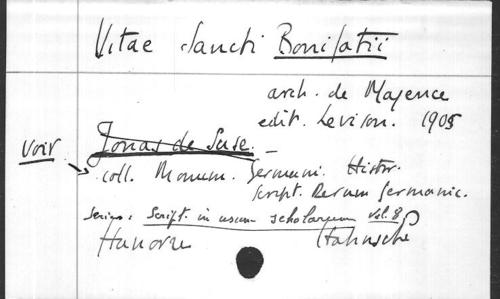 Vitae Sancti Bonifatii
arch. de Mayence
edit. Levison. 1905
Jonas de Suse. —
Voir
coll. Monum. Germani. Histor.
Script. Rerum Germanic.
Series: Script. in usum scholarum vol. 8
Hanovre Hahnsche